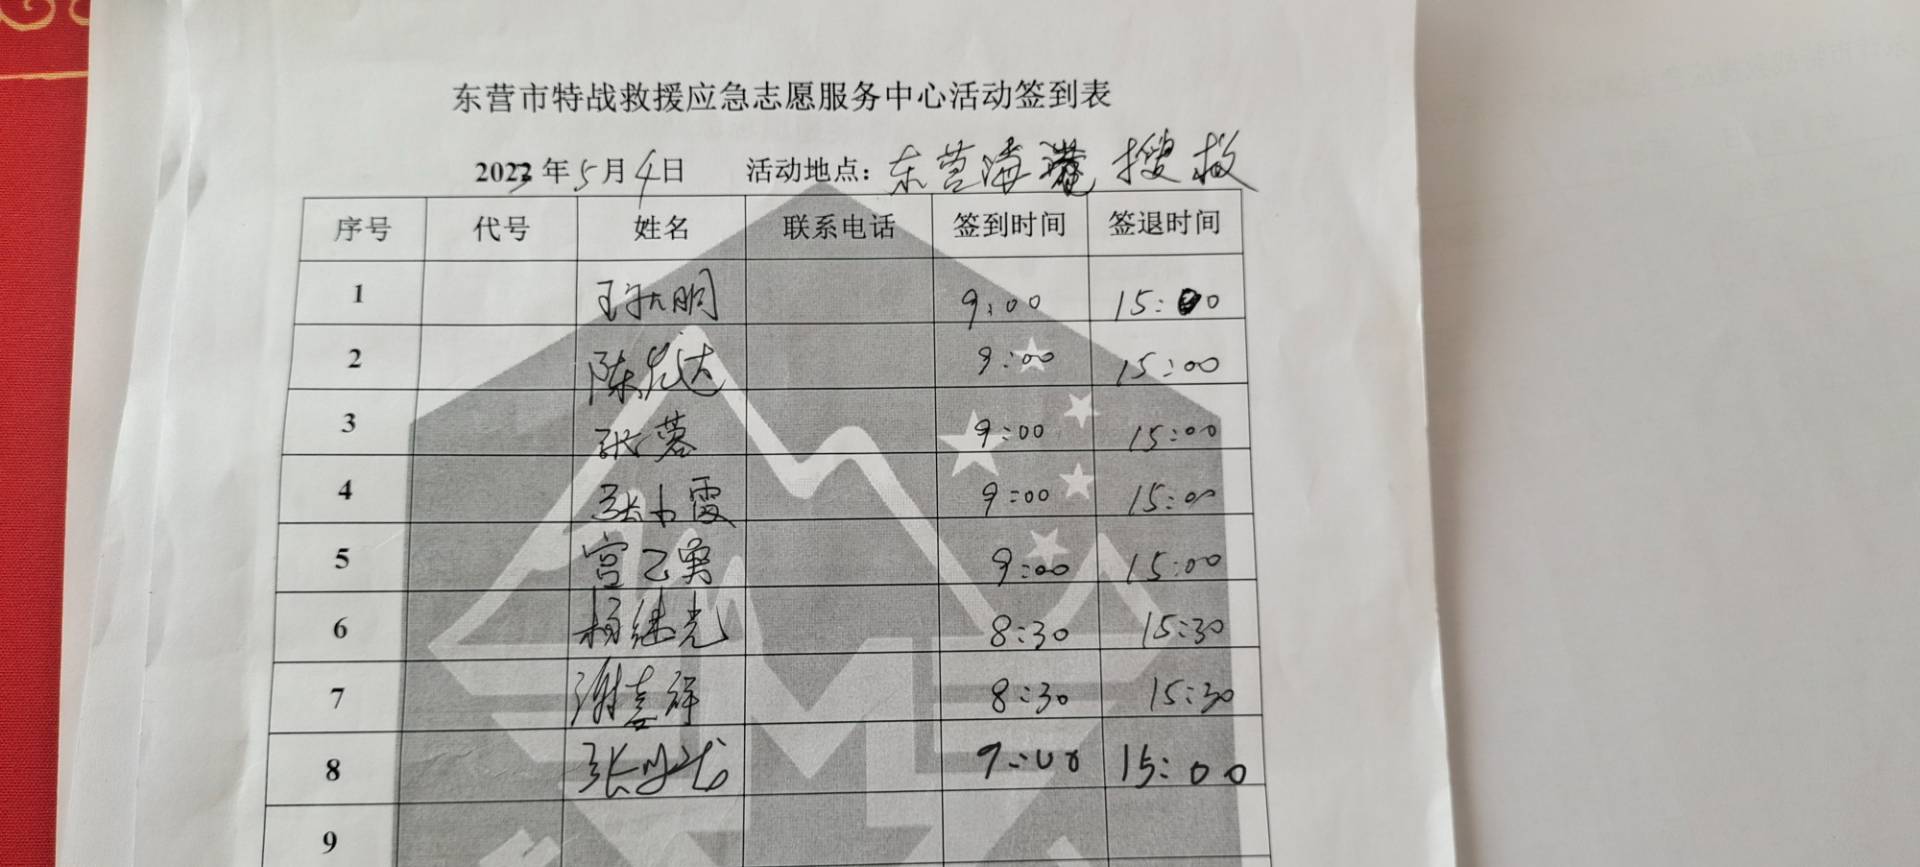 东营市特战救援应急志愿服务中心活动签到表
2023年5月4日 活动地点：东营海港 搜救
序号 代号 姓名 联系电话 签到时间 签退时间
1 9:00 15:00
2 陈 达 9:00 15:00
3 张蓉 9:00 15:00
4 张小霞 9:00 15:00
5 宫乙勇 9:00 15:00
6 杨继光 8:30 15:30
7 谢吉祥 8:30 15:30
8 张 9:00 15:00
9